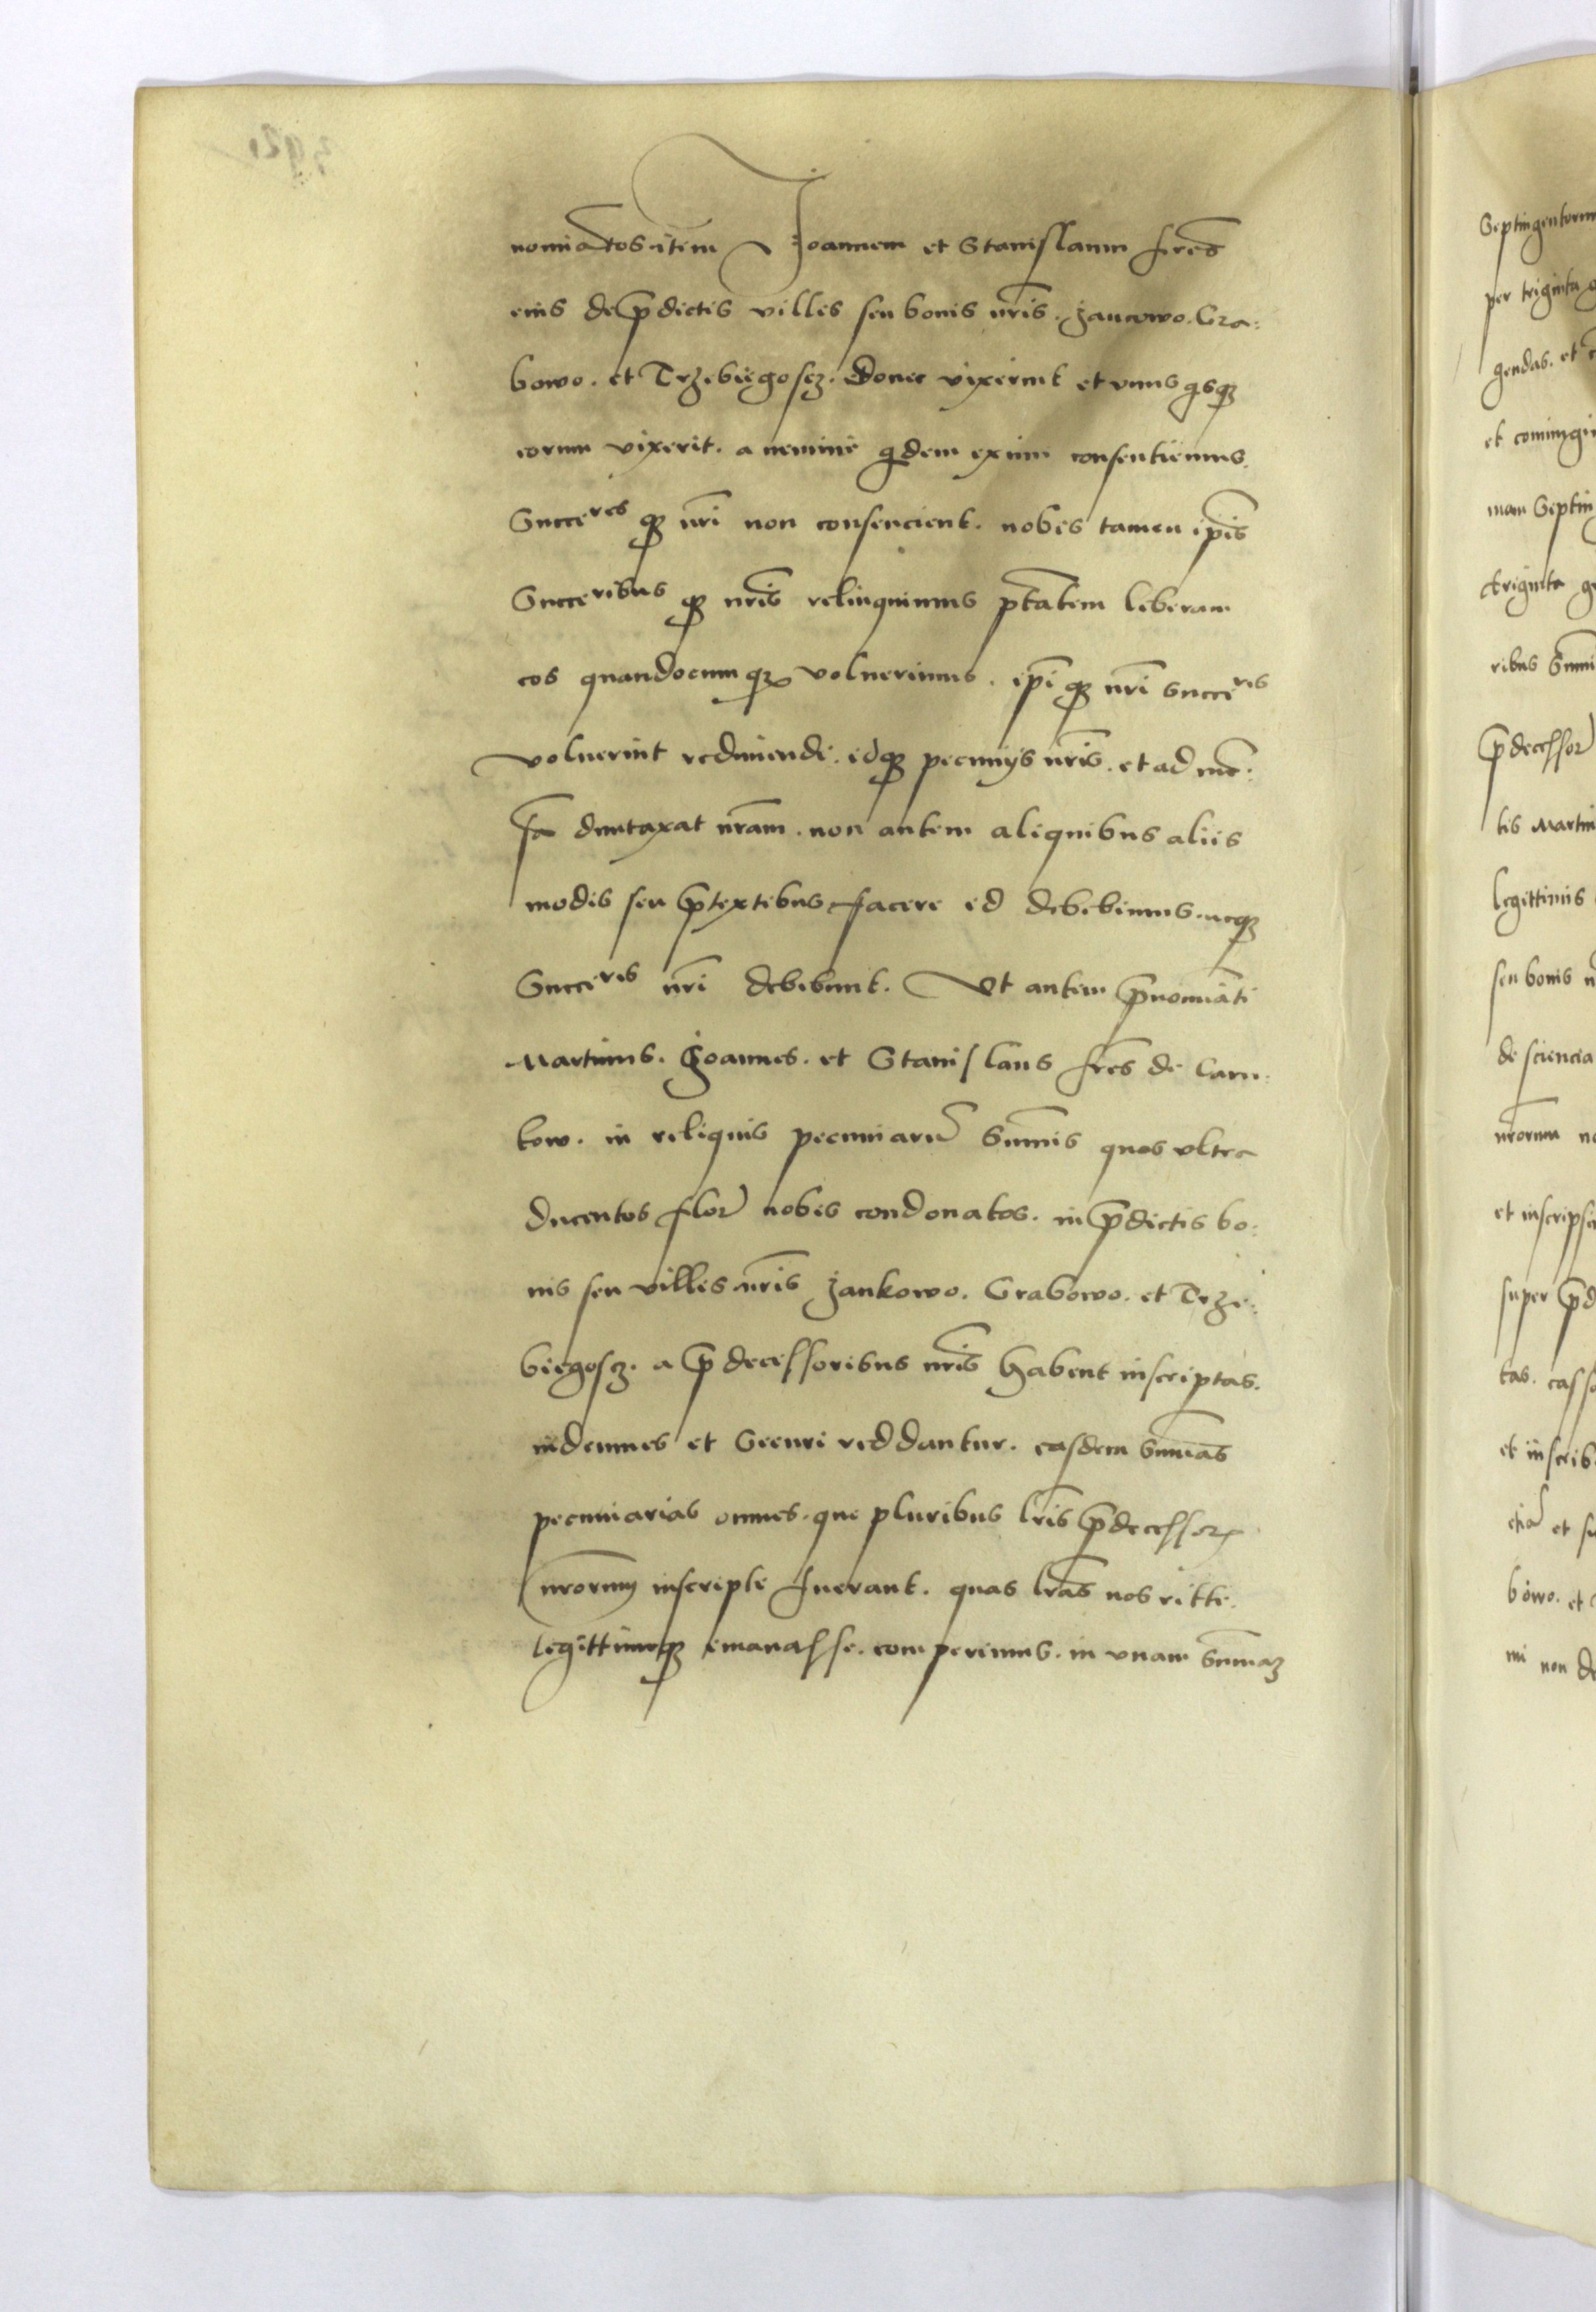 nomiatos item Joannem et Stanislaum fres
eius de pdictis villis seu bonis nris. Jancowo. Gra:
bowo. et Trzebiegoscz. donec vixerint et vnus qsqz
eorum vixerit. a nemine qdem eximi consentiemus.
Succeres qz nri non consencient. nobis tamen ipis
Succeribus qz nris relinquimus ptatem liberam
eos quandocumqz voluerimus. ipi qz nri succeres
voluerint redimendi. idqz pecuniis nris. et ad men:
sa duntaxat nram. non autem aliquibus aliis
modis seu ptextibus facere id debebimus. neqz
Succeres nri debebunt. Vt autem pnomiati
Martinus. Joannes. et Stanislaus fres de Carn:
kow. in reliquis pecuniaru Summis quas vltra
ducentos flor nobis condonatos. in pdictis bo:
nis seu villis nris Jankowo. Grabowo. et Trze:
biegosz. a pdecessoribus nris habent inscriptas.
indemnes et Securi reddantur. easdem Summas
pecuniarias omnes. que pluribus lris pdecessor
nrorum inscripte fuerant. quas lras nos ritte.
legittimeqz emanasse. comperimus. in vnam Summaz
Septingentorum
per triginta
gendas. et
mam Septin
triginta
ribus Summi
pdecessor
tis Martin
legittimis
seu bonis
de sciencia
nrorum
et inscripsi
super pd
tas.
et inscrib
bowo. et
non